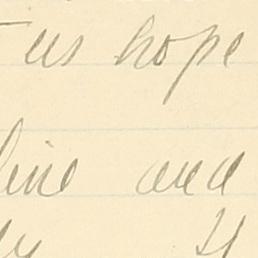 us hope
line and